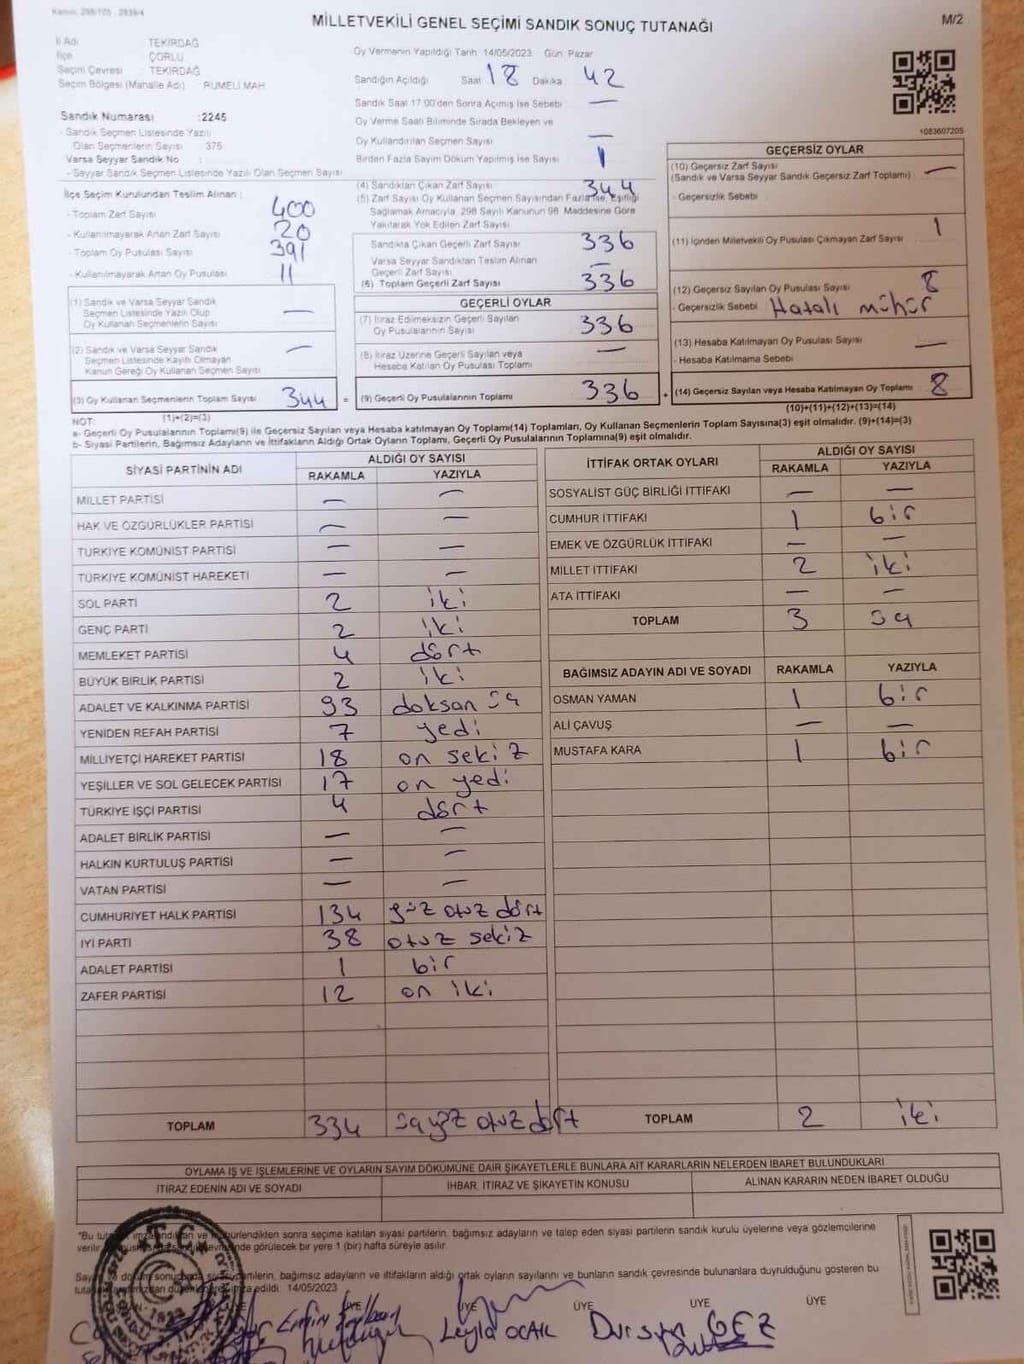 MİLLETVEKİLİ GENEL SEÇİMİ SANDIK SONUÇ TUTANAĞI
M/2
İl Adı TEKİRDAĞ
İlçe ÇORLU
Seçim Çevresi TEKİRDAĞ
Seçim Bölgesi (Mahalle Adı) RUMELİ MAH
Sandık Numarası :2245
- Sandık Seçmen Listesinde Yazılı
Olan Seçmenlerin Sayısı 375
Varsa Seyyar Sandık No :
- Seyyar Sandık Seçmen Listesinde Yazılı Olan Seçmen Sayısı
İlçe Seçim Kurulundan Teslim Alınan :
- Toplam Zarf Sayısı 400
- Kullanılmayarak Artan Zarf Sayısı 20
- Toplam Oy Pusulası Sayısı 391
- Kullanılmayarak Artan Oy Pusulası 11
(1) Sandık ve Varsa Seyyar Sandık
Seçmen Listesinde Yazılı Olup
Oy Kullanan Seçmenlerin Sayısı —
(2) Sandık ve Varsa Seyyar Sandık
Seçmen Listesinde Kayıtlı Olmayan
Kanun Gereği Oy Kullanan Seçmen Sayısı —
(3) Oy Kullanan Seçmenlerin Toplam Sayısı 344 =
(1)+(2)=(3)
Oy Vermenin Yapıldığı Tarih 14/05/2023 Gün: Pazar
Sandığın Açıldığı Saat 18 Dakika 42
Sandık Saat 17:00'den Sonra Açılmış İse Sebebi —
Oy Verme Saati Bitiminde Sırada Bekleyen ve
Oy Kullandırılan Seçmen Sayısı —
Birden Fazla Sayım Döküm Yapılmış İse Sayısı 1
(4) Sandıktan Çıkan Zarf Sayısı 344
(5) Zarf Sayısı Oy Kullanan Seçmen Sayısından Fazla İse, Eşitliği
Sağlamak Amacıyla, 298 Sayılı Kanunun 98. Maddesine Göre
Yakılarak Yok Edilen Zarf Sayısı
Sandıkta Çıkan Geçerli Zarf Sayısı 336
Varsa Seyyar Sandıktan Teslim Alınan
Geçerli Zarf Sayısı —
(6) Toplam Geçerli Zarf Sayısı 336
GEÇERLİ OYLAR
(7) İtiraz Edilmeksizin Geçerli Sayılan
Oy Pusulalarının Sayısı 336
(8) İtiraz Üzerine Geçerli Sayılan veya
Hesaba Katılan Oy Pusulası Toplamı —
(9) Geçerli Oy Pusulalarının Toplamı 336 +
1083607205
GEÇERSİZ OYLAR
(10) Geçersiz Zarf Sayısı —
(Sandık ve Varsa Seyyar Sandık Geçersiz Zarf Toplamı)
- Geçersizlik Sebebi
(11) İçinden Milletvekili Oy Pusulası Çıkmayan Zarf Sayısı 1
(12) Geçersiz Sayılan Oy Pusulası Sayısı 8
- Geçersizlik Sebebi Hatalı mühür
(13) Hesaba Katılmayan Oy Pusulası Sayısı —
- Hesaba Katılmama Sebebi
(14) Geçersiz Sayılan veya Hesaba Katılmayan Oy Toplamı 8
(10)+(11)+(12)+(13)=(14)
NOT:
a- Geçerli Oy Pusulalarının Toplamı(9) ile Geçersiz Sayılan veya Hesaba katılmayan Oy Toplamı(14) Toplamları, Oy Kullanan Seçmenlerin Toplam Sayısına(3) eşit olmalıdır. (9)+(14)=(3)
b- Siyasi Partilerin, Bağımsız Adayların ve İttifakların Aldığı Ortak Oyların Toplamı, Geçerli Oy Pusulalarının Toplamına(9) eşit olmalıdır.
SİYASİ PARTİNİN ADI ALDIĞI OY SAYISI
RAKAMLA YAZIYLA
MİLLET PARTİSİ — —
HAK VE ÖZGÜRLÜKLER PARTİSİ — —
TÜRKİYE KOMÜNİST PARTİSİ — —
TÜRKİYE KOMÜNİST HAREKETİ — —
SOL PARTİ 2 iki
GENÇ PARTİ 2 iki
MEMLEKET PARTİSİ 4 dört
BÜYÜK BİRLİK PARTİSİ 2 iki
ADALET VE KALKINMA PARTİSİ 93 doksan üç
YENİDEN REFAH PARTİSİ 7 yedi
MİLLİYETÇİ HAREKET PARTİSİ 18 on sekiz
YEŞİLLER VE SOL GELECEK PARTİSİ 17 on yedi
TÜRKİYE İŞÇİ PARTİSİ 4 dört
ADALET BİRLİK PARTİSİ — —
HALKIN KURTULUŞ PARTİSİ — —
VATAN PARTİSİ — —
CUMHURİYET HALK PARTİSİ 134 yüz otuz dört
İYİ PARTİ 38 otuz sekiz
ADALET PARTİSİ 1 bir
ZAFER PARTİSİ 12 on iki
TOPLAM 334 üçyüz otuz dört
İTTİFAK ORTAK OYLARI ALDIĞI OY SAYISI
RAKAMLA YAZIYLA
SOSYALİST GÜÇ BİRLİĞİ İTTİFAKI — —
CUMHUR İTTİFAKI 1 bir
EMEK VE ÖZGÜRLÜK İTTİFAKI — —
MİLLET İTTİFAKI 2 iki
ATA İTTİFAKI — —
TOPLAM 3 üç
BAĞIMSIZ ADAYIN ADI VE SOYADI RAKAMLA YAZIYLA
OSMAN YAMAN 1 bir
ALİ ÇAVUŞ — —
MUSTAFA KARA 1 bir
TOPLAM 2 iki
OYLAMA İŞ VE İŞLEMLERİNE VE OYLARIN SAYIM DÖKÜMÜNE DAİR ŞİKAYETLERLE BUNLARA AİT KARARLARIN NELERDEN İBARET BULUNDUKLARI
İTİRAZ EDENİN ADI VE SOYADI İHBAR, İTİRAZ VE ŞİKAYETİN KONUSU ALINAN KARARIN NEDEN İBARET OLDUĞU
*Bu ve mühürlendikten sonra seçime katılan siyasi partilerin, bağımsız adayların ve talep eden siyasi partilerin sandık kurulu üyelerine veya gözlemcilerine
görülecek bir yere 1 (bir) hafta süreyle asılır.
döküm sonucunda partilerin, bağımsız adayların ve ittifakların aldığı ortak oyların sayılarını ve bunların sandık çevresinde bulunanlara duyrulduğunu gösteren bu
edildi. 14/05/2023
T.C.
ÜYE ÜYE ÜYE ÜYE ÜYE
Leyla OCAK Dursun GEZ